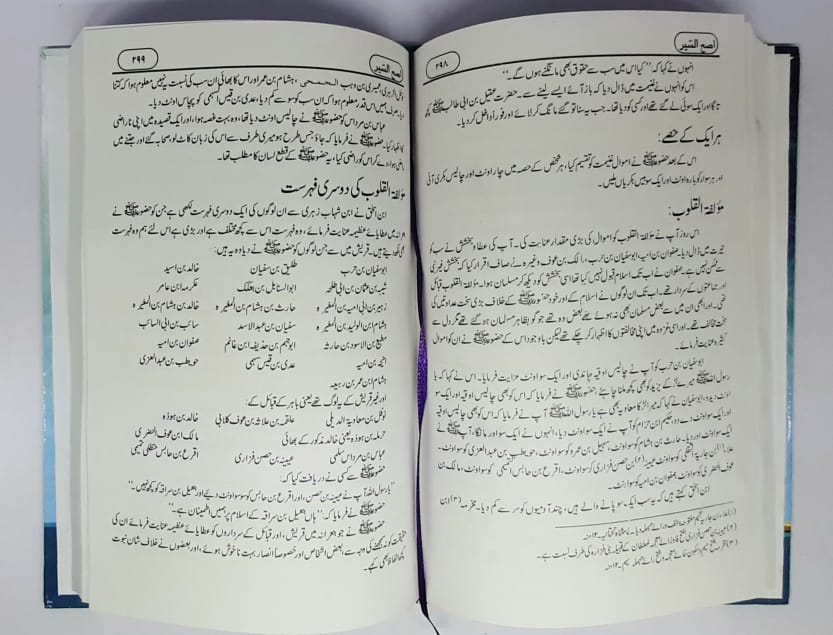 اصح السیر
۲۹۸
انہوں نے کہا کہ: ’’کیا اس میں سب سے حقوق بھی مانگنے ہوں گے۔‘‘
اس کو انہوں نے غنیمت میں ڈال دیا کہ باز آئے ایسے لینے سے۔ حضرت عقیل بن ابی طالبؓ کچھ
تاگا اور ایک سوئی لے گئے تھے اور کسی کو دیا تھا۔ جب یہ سنا تو گئے مانگ کر لائے اور فوراً داخل کر دیا۔
ہر ایک کے حصے:
اس کے بعد حضور ﷺ نے اموال غنیمت کو تقسیم کیا، ہر شخص کے حصہ میں چار اونٹ اور چالیس بکری آئی
اور ہر سوار کو بارہ اونٹ اور ایک سو بیس بکریاں ملیں۔
مؤلفۃ القلوب:
اس روز آپ نے مؤلفۃ القلوب کو اموال کی بڑی مقدار عنایت کی۔ آپ کی عطا و بخشش نے سب کو
حیرت میں ڈال دیا۔ صفوان بن امیہ، ابوسفیان بن حرب، مالک بن عوف وغیرہ نے صاف اقرار کیا کہ یہ بخشش غیر نبی
سے ممکن نہیں ہے۔ صفوان نے اب تک اسلام قبول نہیں کیا تھا اسی بخشش کو دیکھ کر مسلمان ہوا۔ مؤلفۃ القلوب قبائل
اور جماعتوں کے سردار تھے۔ اب تک ان لوگوں نے اسلام کے اور خود حضور ﷺ کے خلاف بڑی سخت عداوتیں کی
تھیں۔ اور ابھی ان میں سے بعض مسلمان بھی نہ ہوئے تھے بعض وہ تھے جو گو بظاہر مسلمان ہو گئے تھے مگر دل سے
سخت مخالف تھے۔ اور اسی غزوہ میں اپنی مخالفتوں کا اظہار کر چکے تھے لیکن باوجود اس کے حضور ﷺ نے ان کو اموال
کثیرہ عنایت فرمائے۔
ابوسفیان بن حرب کو آپ نے چالیس اوقیہ چاندی اور ایک سو اونٹ عنایت فرمایا۔ اس نے کہا کہ یا
رسول اللہ ﷺ میرے لڑکے یزید کو بھی کچھ ملنا چاہئے حضور ﷺ نے فرمایا کہ اس کو بھی چالیس اوقیہ اور ایک سو
اونٹ دیدو، ابوسفیان نے کہا کہ میرا لڑکا معاویہ بھی ہے یا رسول اللہ ﷺ آپ نے فرمایا کہ اس کو بھی چالیس اوقیہ
اور ایک سو اونٹ دے دو، حکیم ابن حزام کو آپ نے ایک سو اونٹ دیا، انہوں نے ایک سو اور مانگا، آپ ﷺ نے
ایک سو اونٹ اور دیا۔ حارث بن ہشام کو سو اونٹ، سہیل بن عمرو کو سو اونٹ، حویطب بن عبدالعزی کو سو اونٹ،
علاء(۱) بن جاریہ الثقفی کو سو اونٹ، عیینہ(۲) بن حصن فزاری کو سو اونٹ، اقرع بن حابس التمیمی کو سو اونٹ، مالک بن
عوف النصری کو سو اونٹ، صفوان بن امیہ کو سو اونٹ۔
ابن اسحٰق کہتے ہیں کہ یہ سب ایک سو پانے والے ہیں، چند آدمیوں کو سو سے کم دیا۔ مخرمہ(۳) ابن
۲۹۹
اصح السیر
نوفل الزہری، عمیر بن وہب الجمحی، ہشام بن عمر اور اس کا بھائی ان سب کی نسبت یہ نہیں معلوم ہوا کہ کتنا
دیا۔ صرف ہمیں اس قدر معلوم ہوا کہ ان سب کو سو سے کم دیا، عدی بن قیس السہمی کو پچاس اونٹ دیا۔
عباس بن مرداس کو حضور ﷺ نے چالیس اونٹ دیا تھا، وہ بہت غصہ ہوا، اور ایک قصیدہ میں اپنی ناراضی
کا اظہار کیا۔ حضور ﷺ نے فرمایا کہ جاؤ جس طرح ہو میری طرف سے اس کی زبان کاٹ لو، صحابہ گئے اور جتنے میں
راضی ہوا دے کر اس کو راضی کیا، یہ حضور ﷺ کے قطع لسان کا مطلب تھا۔
مؤلفۃ القلوب کی دوسری فہرست
ابن اسحٰق نے ابن شہاب زہری سے ان لوگوں کی ایک دوسری فہرست لکھی ہے جن کو حضور ﷺ نے
جعرانہ میں عطایائے عظیمہ عنایت فرمائے، وہ فہرست اس سے کچھ مختلف ہے اور بڑی ہے اس لئے ہم وہ فہرست
بھی لکھ دیتے ہیں۔ قریش میں سے جن لوگوں کو حضور ﷺ نے دیا وہ یہ ہیں:
ابوسفیان بن حرب طلیق بن سفیان خالد بن اسید
شیبہ بن عثمان بن ابی طلحہ ابوالسنابل بن بعکک عکرمہ بن عامر
زہیر بن ابی امیہ بن المغیرہ حارث بن ہشام بن المغیرہ خالد بن ہشام بن المغیرہ
ہشام بن الولید بن المغیرہ سفیان بن عبدالاسد سائب بن ابی السائب
مطیع بن الاسود بن حارثہ ابوجہم بن حذیفہ ابن غانم صفوان بن امیہ
احیحہ بن امیہ عدی بن قیس سہمی حویطب بن عبدالعزی
ہشام بن عمر بن ربیعہ
اور غیر قریش کے یہ لوگ تھے یعنی باہر کے قبائل کے:
نوفل بن معاویہ الدیلی علقمہ بن علاثہ بن عوف کلابی خالد بن ہوذہ
حرملہ بن ہوذہ یعنی خالد مذکور کے بھائی مالک ابن عوف النصری
عباس بن مرداس سلمی عیینہ بن حصن فزاری اقرع بن حابس حنظلی تمیمی
حضور ﷺ سے کسی نے دریافت کیا کہ:
’’یا رسول اللہ آپ نے عیینہ بن حصن، اور اقرع بن حابس کو سو سو اونٹ دئے اور جعیل بن سراقہ کو کچھ نہیں۔‘‘
حضور ﷺ نے فرمایا کہ: ’’ہاں جعیل بن سراقہ کے اسلام پر ہمیں اطمینان ہے۔‘‘
حضور ﷺ نے جو جعرانہ میں قریش، اور قبائل کے سرداروں کو عطایائے عظیمہ عنایت فرمائے ان کی
حقیقت کو نہ سمجھنے کی وجہ سے بعض اشخاص اور خصوصاً انصار بہت ناخوش ہوئے، اور بعضوں نے خلاف شان نبوت
کچھ الفاظ بھی کہے۔